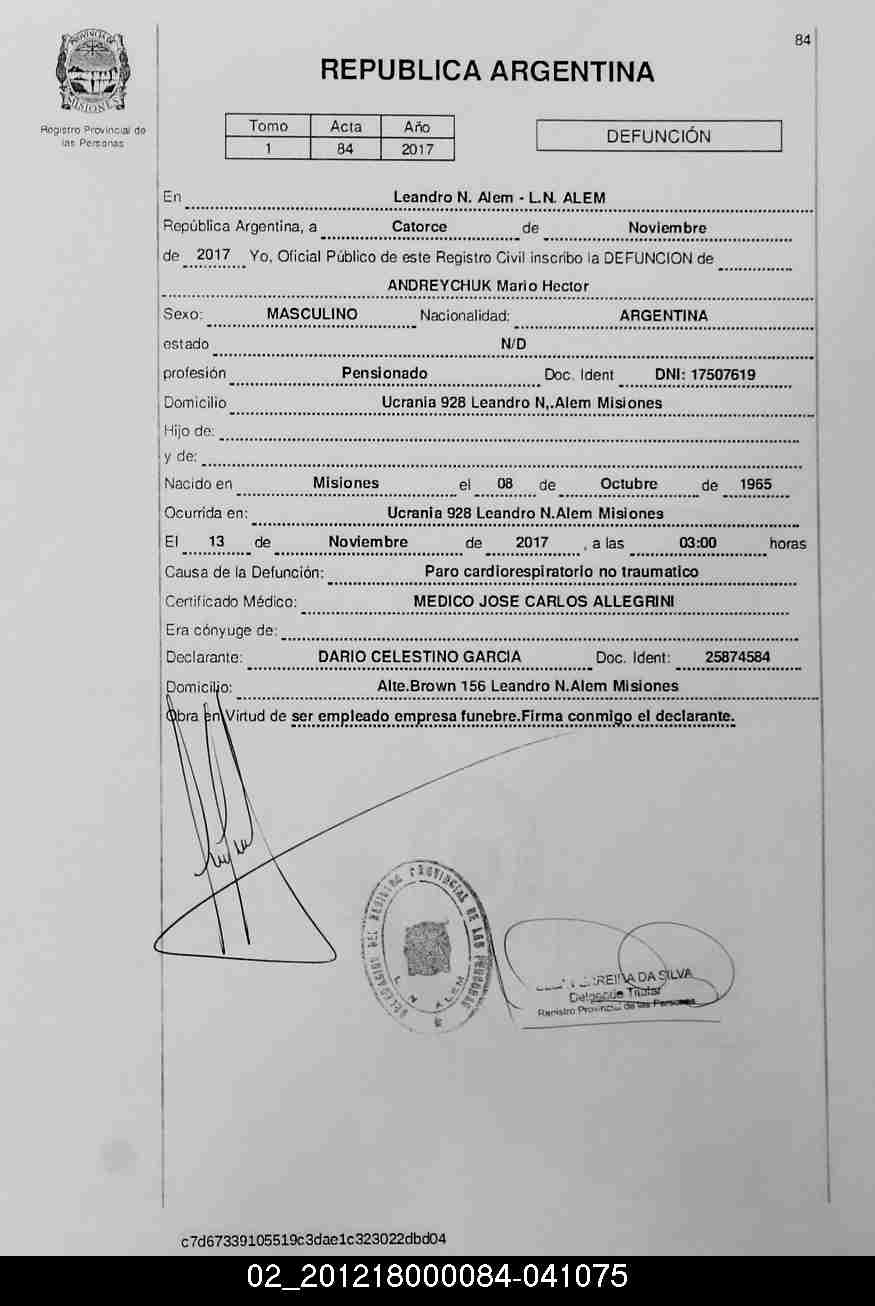 84
PROVINCIA DE
MISIONES
Registro Provincial de
las Personas
REPUBLICA ARGENTINA
Tomo Acta Año
1 84 2017
DEFUNCIÓN
En Leandro N. Alem - L.N. ALEM
República Argentina, a Catorce de Noviembre
de 2017 Yo, Oficial Público de este Registro Civil inscribo la DEFUNCION de
ANDREYCHUK Mario Hector
Sexo: MASCULINO Nacionalidad: ARGENTINA
estado N/D
profesión Pensionado Doc. Ident DNI: 17507619
Domicilio Ucrania 928 Leandro N,.Alem Misiones
Hijo de:
y de:
Nacido en Misiones el 08 de Octubre de 1965
Ocurrida en: Ucrania 928 Leandro N.Alem Misiones
El 13 de Noviembre de 2017 , a las 03:00 horas
Causa de la Defunción: Paro cardiorespiratorio no traumatico
Certificado Médico: MEDICO JOSE CARLOS ALLEGRINI
Era cónyuge de:
Declarante: DARIO CELESTINO GARCIA Doc. Ident: 25874584
Domicilio: Alte.Brown 156 Leandro N.Alem Misiones
Obra en Virtud de ser empleado empresa funebre.Firma conmigo el declarante.
DELEGACION DEL REGISTRO PROVINCIAL DE LAS PERSONAS
L. N. ALEM
DA SILVA
Delegado Titular
Registro Provincial de las Personas
c7d67339105519c3dae1c323022dbd04
02_201218000084-041075